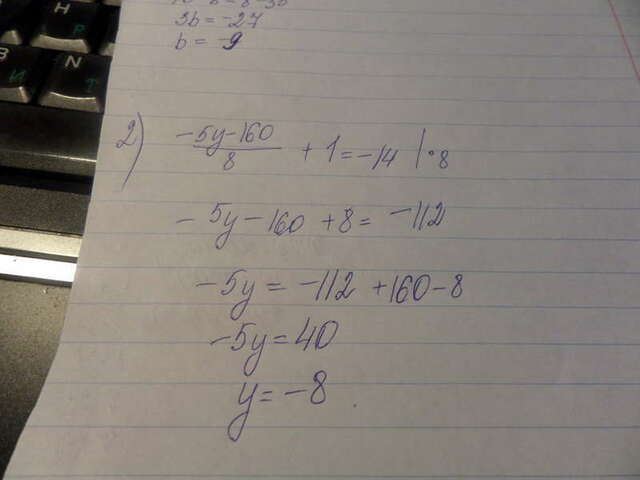 3b = -27
b = -9
2) (-5y-160)/8 + 1 = -14 | · 8
-5y - 160 + 8 = -112
-5y = -112 + 160 - 8
-5y = 40
y = -8
H Р
В И N Т